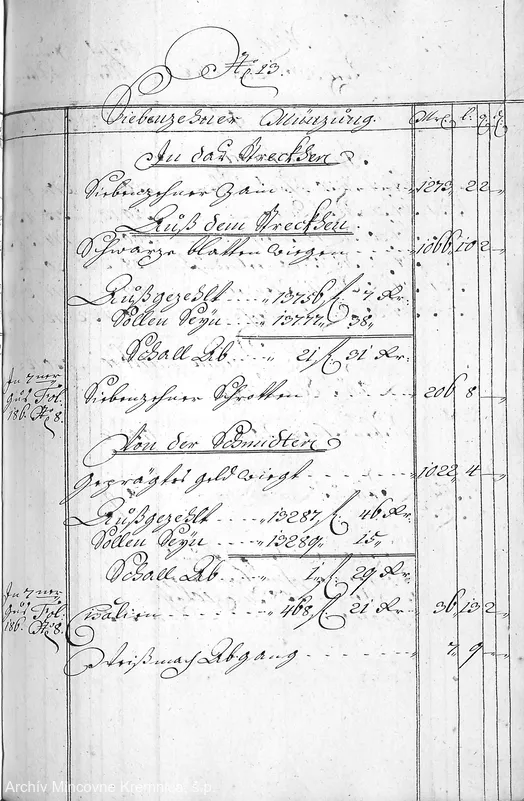 No 13
Siebenzehner Münzung. Mrc. l. q. d.
In das Streckhen
Siebenzehner Zain 1273. 2 2
Auß dem Streckhen
Schwarze blatten wiegen 1066. 10 2
Außgezehlt 13756 f. 7 Kr.
Sollen Seyn 13777. 38.
Schall Ab 21 f. 31 Kr.
In 7ner
Guß Fol.
186. No 8.
Siebenzehner Schrotten 206 8
Von der Schmidten
Geprägtes geld wiegt 1022. 4
Außgezehlt 13287. f. 46 Kr.
Sollen Seyn 13289. 15.
Schall Ab 1. f. 29 Kr.
In 7ner
Guß Fol.
186. No 8.
Cisalien 468. f. 21 Kr. 36. 13 2
Weißmach Abgang 7. 9
Archív Mincovne Kremnica, š.p.